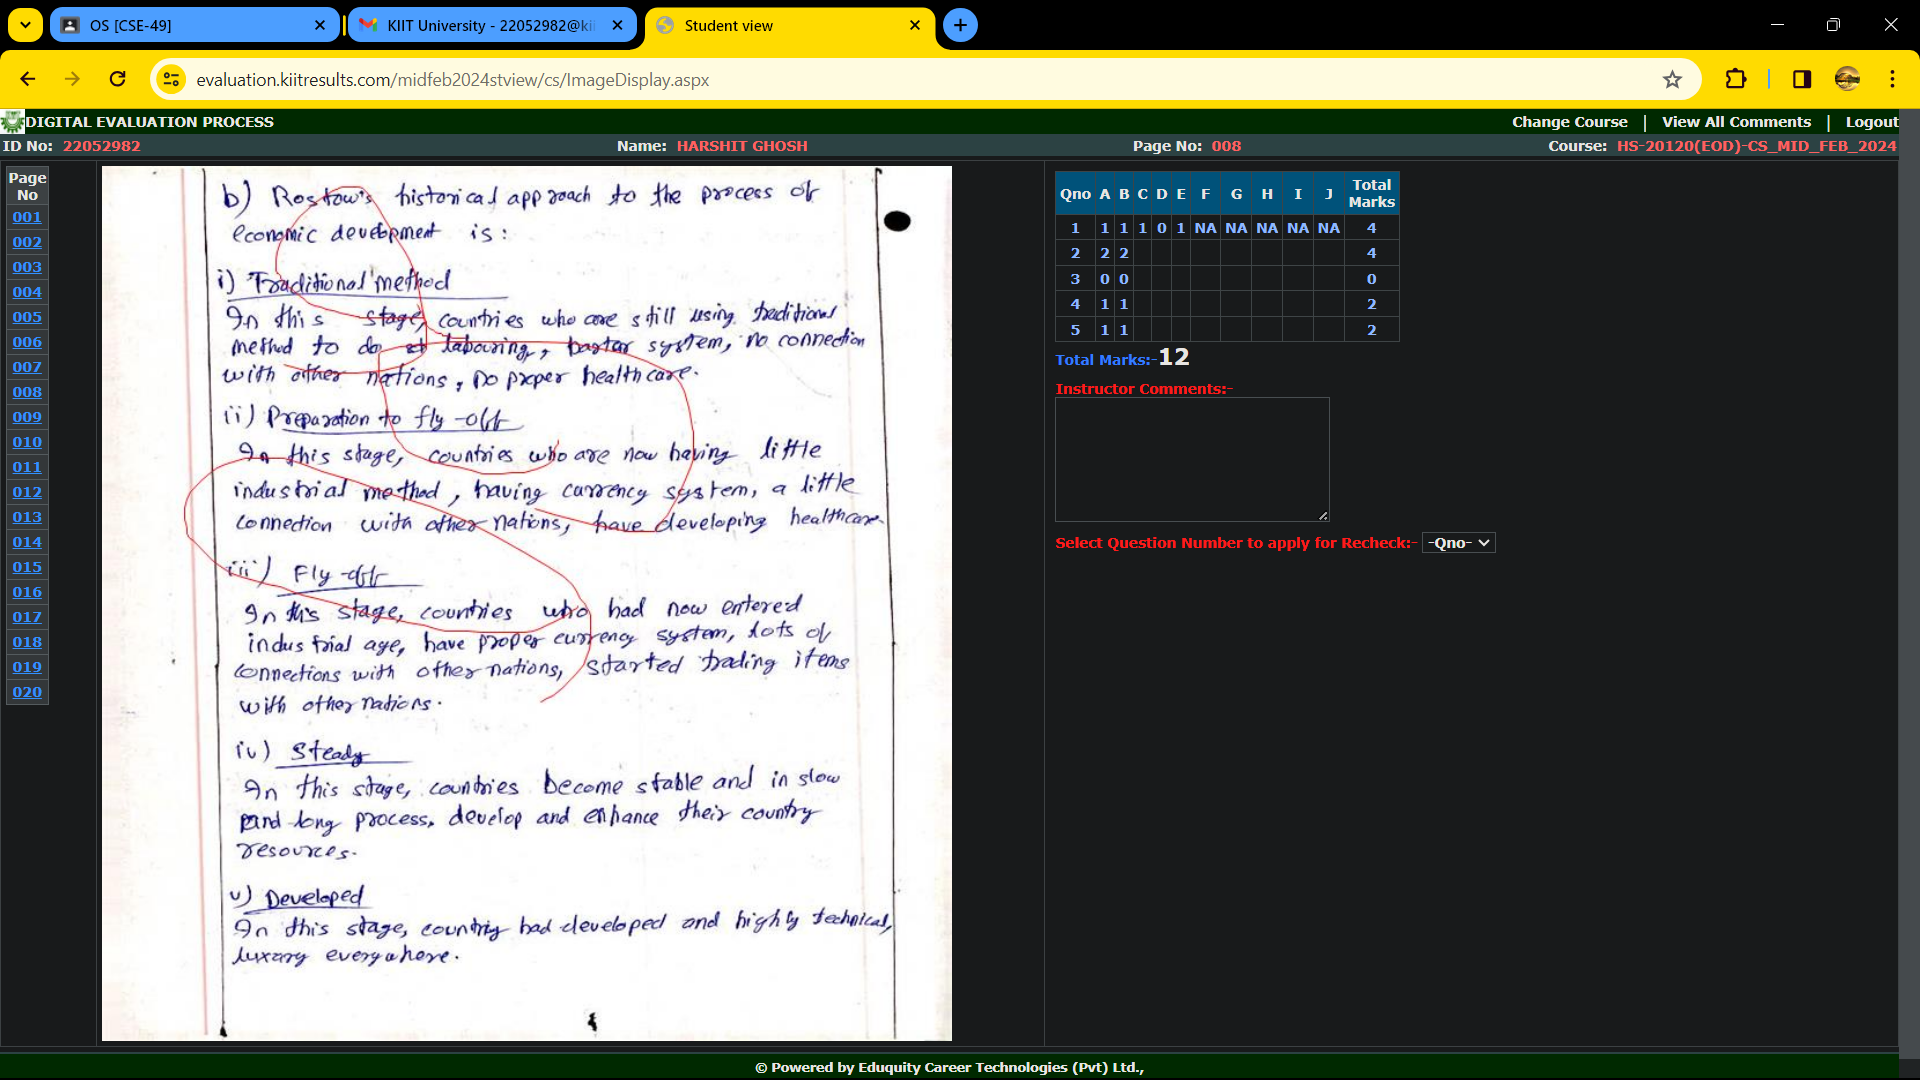 OS [CSE-49]
KIIT University - 22052982@kii
Student view
evaluation.kiitresults.com/midfeb2024stview/cs/ImageDisplay.aspx
DIGITAL EVALUATION PROCESS
Change Course | View All Comments | Logout
ID No: 22052982 Name: HARSHIT GHOSH Page No: 008 Course: HS-20120(EOD)-CS_MID_FEB_2024
Page No
001
002
003
004
005
006
007
008
009
010
011
012
013
014
015
016
017
018
019
020
b) Rostow's historical approach to the process of
economic development is:
i) Traditional method
In this stage, countries who are still using traditional
method to do labouring, bartar system, no connection
with other nations, no proper healthcare.
ii) Preparation to fly-off
In this stage, countries who are now having little
industrial method, having currency system, a little
connection with other nations, have developing healthcare.
iii) Fly-off
In this stage, countries who had now entered
industrial age, have proper currency system, lots of
connections with other nations, started trading items
with other nations.
iv) Steady
In this stage, countries become stable and in slow
and long process, develop and enhance their country
resources.
v) Developed
In this stage, country had developed and highly technical,
luxary everywhere.
Qno A B C D E F G H I J Total Marks
1 1 1 1 0 1 NA NA NA NA NA 4
2 2 2 4
3 0 0 0
4 1 1 2
5 1 1 2
Total Marks:-12
Instructor Comments:-
Select Question Number to apply for Recheck:- -Qno-
© Powered by Eduquity Career Technologies (Pvt) Ltd.,